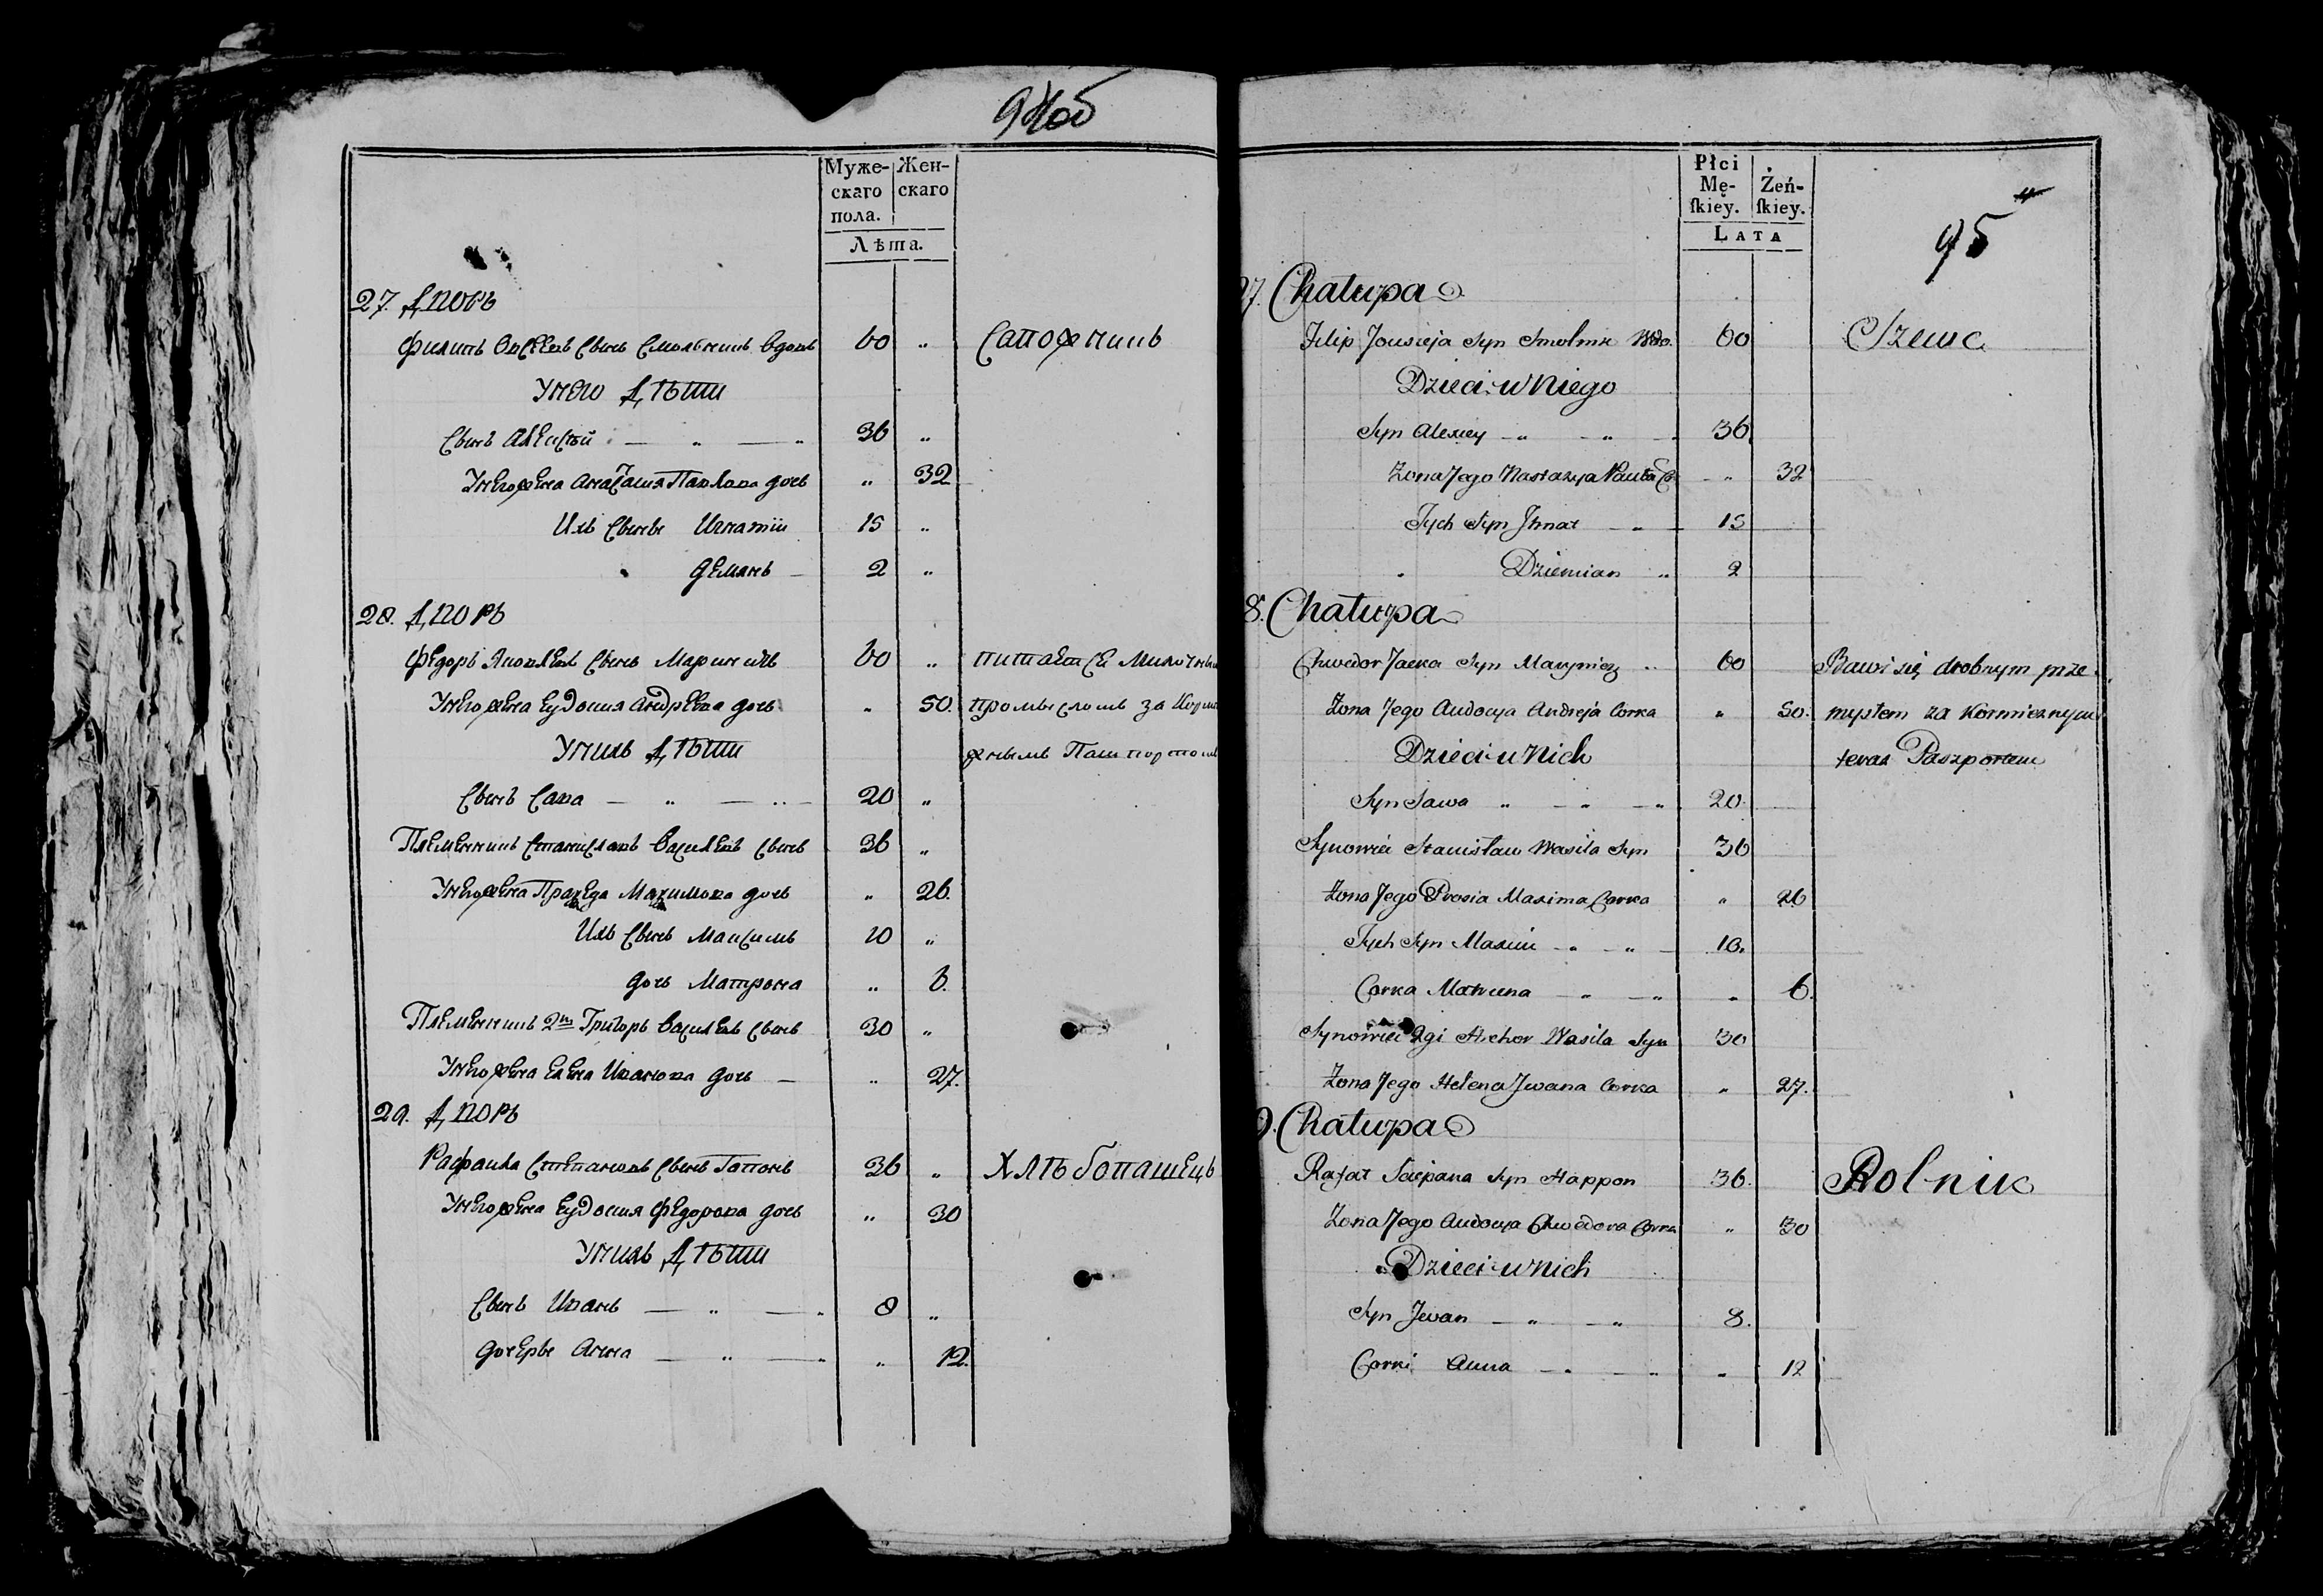 94об
Муже-
скаго
пола.
Жен-
скаго
Лѣта.
27. Дворъ
Филипъ Овсеевъ сынъ Смольникъ вдовъ 60 „ Сапожникъ
У него Дѣти
Сынъ Алексѣй — „ — „ 36 „
У него жена Анастасия Павлова дочь „ 32
Ихъ сыны Игнатiи 15 „
Демянъ — 2 „
28. Дворъ
Федоръ Яковлевъ сынъ 60 „ питается
У него жена Еудокия Андреева дочь „ 50. промысломъ за
У нихъ Дѣти жнымъ Пашпортомъ
Сынъ Сава — „ — „ 20 „
Племенникъ Станиславъ Василевъ сынъ 36 „
У него жена Максимова дочь „ 26.
Ихъ сынъ Максимъ 10 „
дочь Матрона „ 6.
Племенникъ 2й Григоръ Василевъ сынъ 30 „
У него жена Елена Иванова дочь — „ 27.
29. Дворъ
Рафаила Степановъ сынъ Гапонъ 36 „ Хлѣбопашецъ
У него жена Еудокия Федорова дочь „ 30
У нихъ Дѣти
Сынъ Иванъ — „ — „ 8 „
Дочеры Анна — „ — „ „ 12.
Płci
Mę-
ſkiey.
Żeń-
ſkiey.
LATA
95
7. Chałupa
Filip Jousieja Syn Smolnik Wdo. 60 Szewc
Dzieci u Niego
Syn Alexiey — „ — „ — 36
Zona Jego Nastazya Pawła C. — „ 32
Tych Syn Ihnat — „ — 15
„ Dziemian „ 2
8. Chałupa
Chwedor Jacka Syn Marynicz „ 60 Bawi się drobnym prze-
Żona Jego Audocya Andreja Corka „ 50. mysłem za
Dzieci u Nich Paszportem
Syn Sawa „ — „ — „ 20.
Synowiec Stanisław Wasila Syn 36
Żona Jego Prosia Maxima Corka „ 26
Tych Syn Maxim — „ — „ — 10.
Corka Matruna — „ — „ „ 6.
Synowiec 2gi Hrehor Wasila Syn 30
Żona Jego Helena Jwana Corka „ 27.
9. Chałupa
Rafał Sciepana Syn Happon 36. Rolnik
Żona Jego Audocya Chwedora Corka „ 30
Dzieci u Nich
Syn Jwan — „ — „ 8.
Corki Anna — „ — „ „ 12